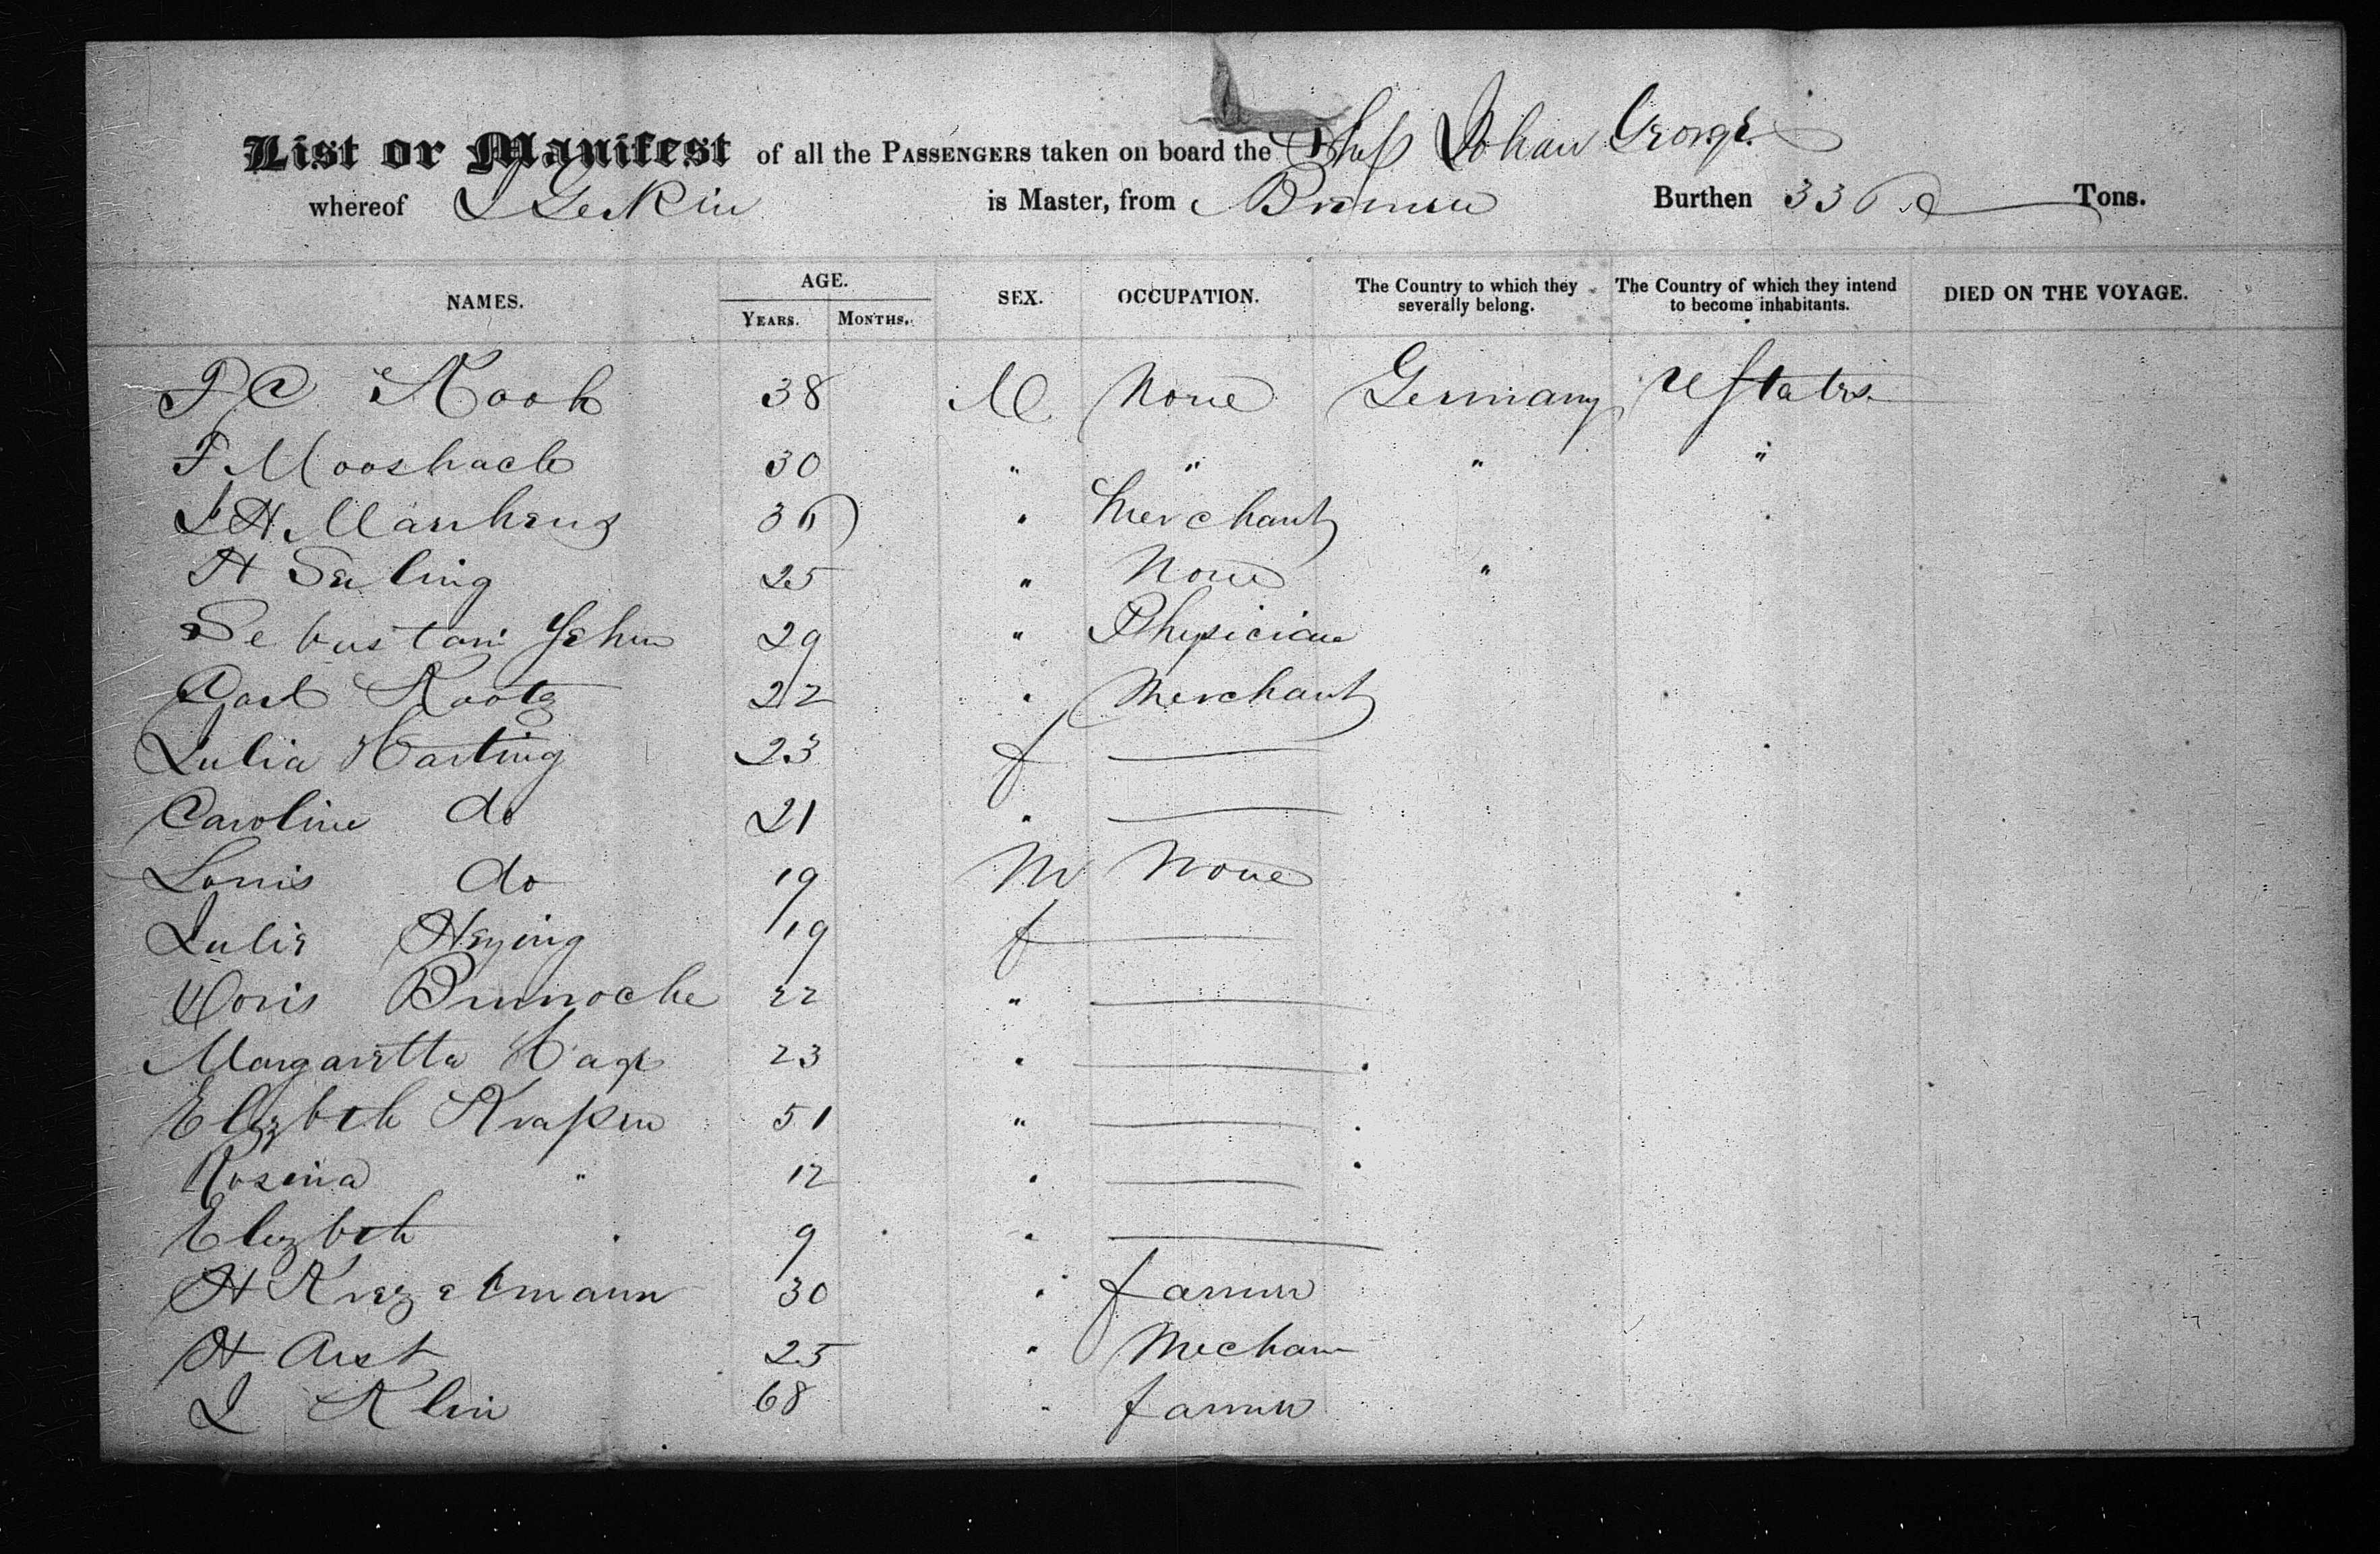 List or Manifest of all the PASSENGERS taken on board the Ship Johan George
whereof J Gerkin is Master, from Bremen Burthen 336 Tons.
NAMES. AGE. YEARS. MONTHS. SEX. OCCUPATION. The Country to which they severally belong. The Country of which they intend to become inhabitants. DIED ON THE VOYAGE.
P C Kook 38 M None Germany UStates
F Mooshack 30 " " " "
J H Marrhens 36 " Merchant
H Serling 25 " None "
Sebustani 29 " Physician
Carl Kootz 22 " Merchant
Julia Harting 23 f —
Caroline do 21 " —
Louis do 19 M None
Julie Heying 19 f —
Doris Brunoche 22 " —
Margaretta Hage 23 " —
Elizbeth 51 " —
Rosina " 12 " —
Elizbeth " 9 " —
H 30 " farmer
H Arst 25 " Mechan
J Klin 68 " farmer